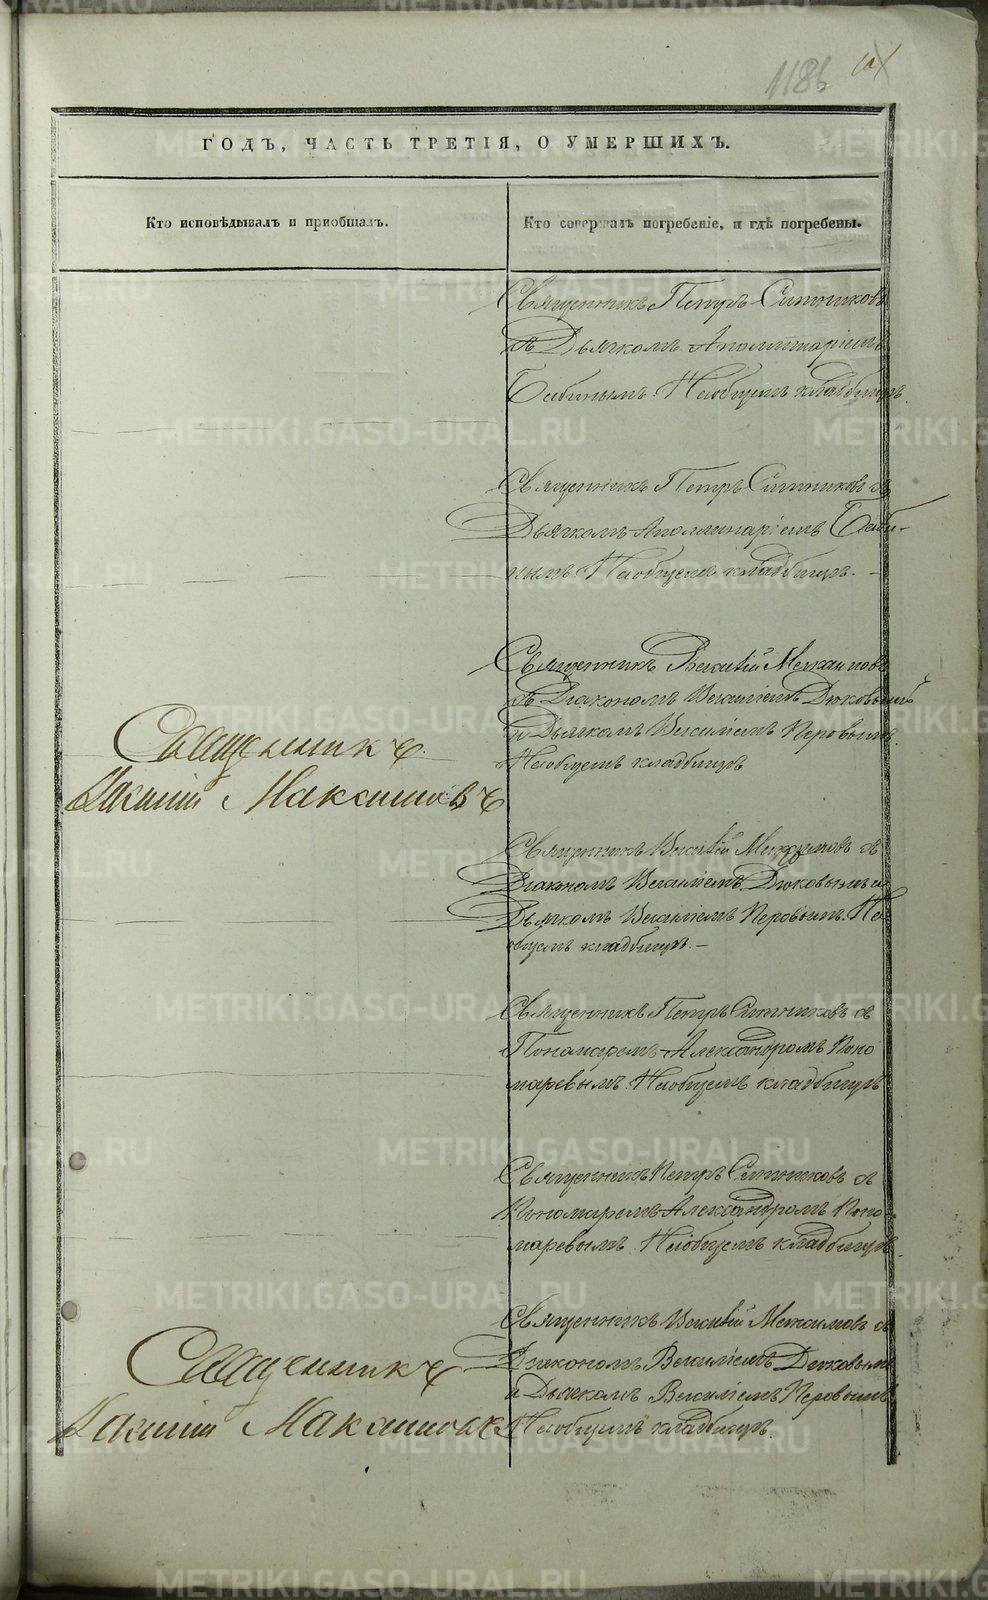 1186
ГОДЪ, ЧАСТЬ ТРЕТІЯ, О УМЕРШИХЪ.
Кто исповѣдывалъ и пріобщалъ.
Кто совершалъ погребеніе, и гдѣ погребены.
Священникъ Петръ Ситниковъ
съ Дьячкомъ Аполлинаріемъ
Бабинымъ. На общемъ кладбищѣ.
Священникъ Петръ Ситниковъ съ
Дьячкомъ Аполлинаріемъ Баби-
нымъ На общемъ кладбищѣ. —
Священникъ Василій Максимовъ
съ Діакономъ Василіемъ Дюковымъ
и Дьячкомъ Василіемъ Перовымъ.
На общемъ кладбищѣ
Священникъ
Василій Максимовъ
Священникъ Василій Максимовъ съ
Діакономъ Василіемъ Дюковымъ и
Дьячкомъ Василіемъ Перовымъ. На
общемъ кладбищѣ. —
Священникъ Петръ Ситниковъ съ
Пономаремъ Александромъ Поно
маревымъ. На общемъ кладбищѣ
Священникъ Петръ Ситниковъ съ
Пономаремъ Александромъ Поно-
маревымъ. На общемъ кладбищѣ.
Священникъ Василій Максимовъ съ
Діакономъ Василіемъ Дюковымъ
и Дьячкомъ Василіемъ Перовымъ
На общемъ кладбищѣ.
Священникъ
Василій Максимовъ
METRIKI.GASO-URAL.RU